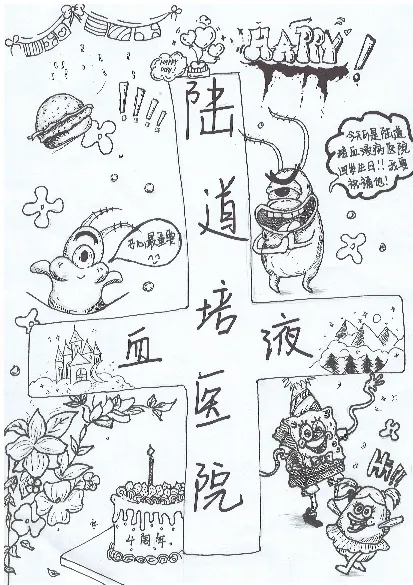 HAPPY!
HAPPY
DAY!
!!!!
陆
道
培
医
院
血
液
今天是陆道
培血液病医院
四岁生日!!我要
祝福他!
开心最重要
^^
Hi!!
4周年